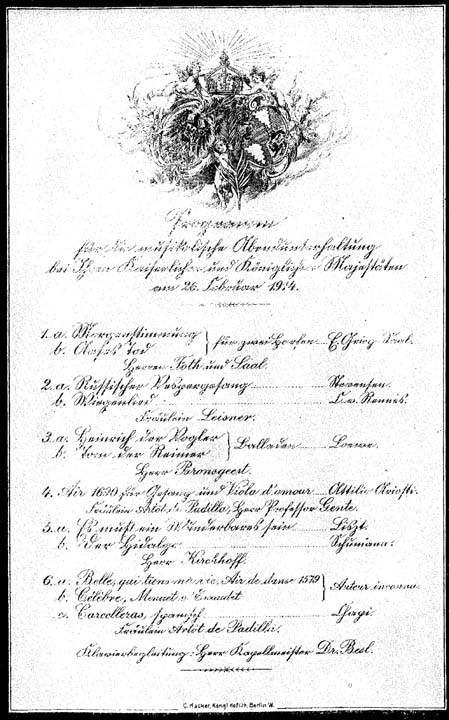 Programm
für die musikalische Abendunterhaltung
bei Ihren Kaiserlichen und Königlichen Majestäten
am 26. Februar 1914.
1. a. Morgenstimmung
b. Aases Tod } für zwei Harfen E. Grieg-Saal.
Herren Toth und Saal.
2. a. Russischer Vespergesang Stevenson.
b. Wiegenlied C. v. Rennes.
Fräulein Leisner.
3. a. Heinrich der Vogler
b. Tom der Reimer } Balladen Loewe.
Herr Bronsgeest.
4. Air 1690 für Gesang und Viola d'amour Attilio Ariosti.
Fräulein Artôt de Padilla, Herr Professor Gente.
5. a. Es muß ein Wunderbares sein Liszt.
b. Der Hidalgo Schumann.
Herr Kirchhoff.
6. a. Belle, qui tiens ma vie, Air de danse 1579
b. Célèbre, Menuet } Auteur inconnu
c. Carcelleras, spanisch Chapi.
Fräulein Artôt de Padilla.
Klavierbegleitung: Herr Kapellmeister Dr. Besl.
C. Hacker, Königl. Hoflith. Berlin W.